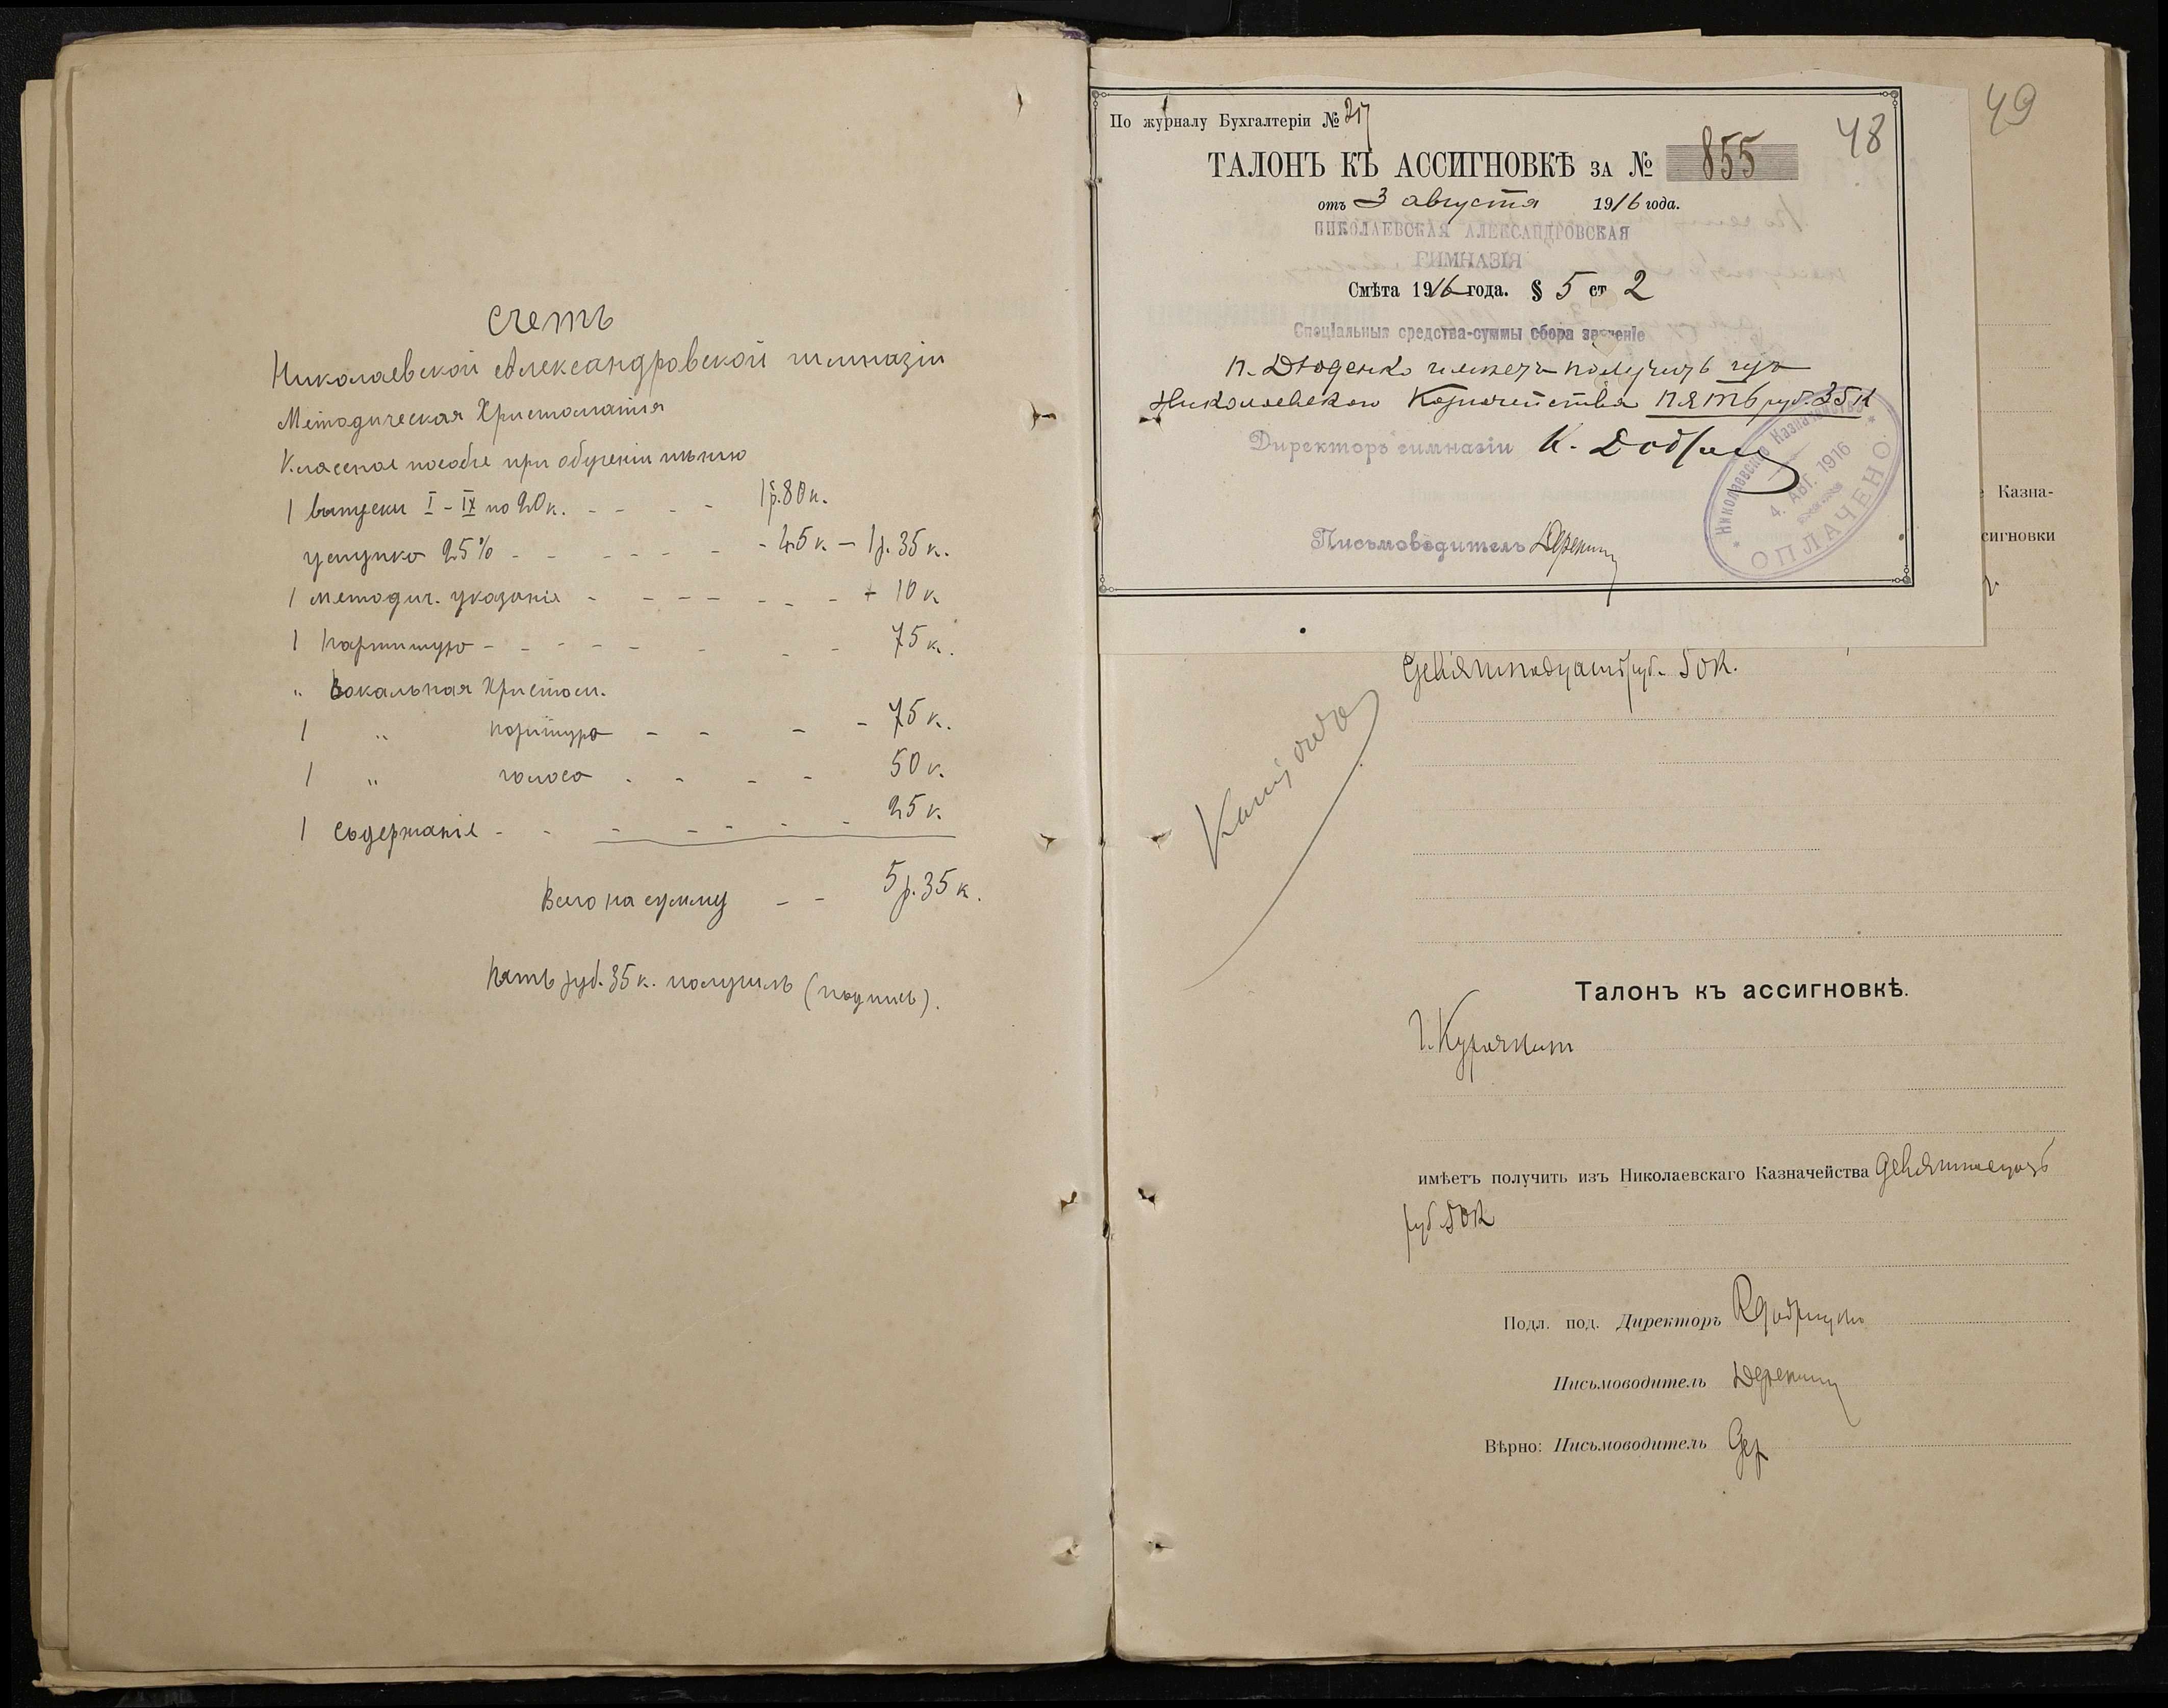 Счетъ
Николаевской Александровской гимназіи
Методическая Христоматія
Классное пособіе при обученіи пѣнію
1 выпуски I - IX по 20 к. - - - - 1 р. 80 к.
уступка 25% - - - - - - - 45 к. - 1 р. 35 к.
1 методич. указанія - - - - - - - 10 к
1 партитура - - - - - - - - 75 к.
" Вокальная Христом.
1 " партитура - - - - 75 к.
1 " голоса - - - - 50 к.
1 Содержаніе - - - - - - - 25 к.
Всего на сумму - - 5 р. 35 к.
Пять руб. 35 к. получилъ (подпись).
49
48
По журналу Бухгалтеріи № 217
ТАЛОНЪ КЪ АССИГНОВКѢ ЗА № 855
отъ 3 августа 1916 года.
НИКОЛАЕВСКАЯ АЛЕКСАНДРОВСКАЯ
ГИМНАЗІЯ
Смѣта 1916 года. § 5 ст 2
Спеціальныя средства-суммы сбора за ученіе
п. Дюденко имѣетъ получить изъ
Николаевскаго Казначейства пять руб. 35 к
Директоръ гимназіи К.
Письмоводитель
Николаевское Казначейство
4. АВГ. 1916
ОПЛАЧЕНО
Казна-
сигновки
девятнадцать руб. 50 к.
Талонъ къ ассигновкѣ.
Г.
имѣетъ получить изъ Николаевскаго Казначейства девятнадцать
руб 50 к
Подл. под. Директоръ
Письмоводитель
Вѣрно: Письмоводитель